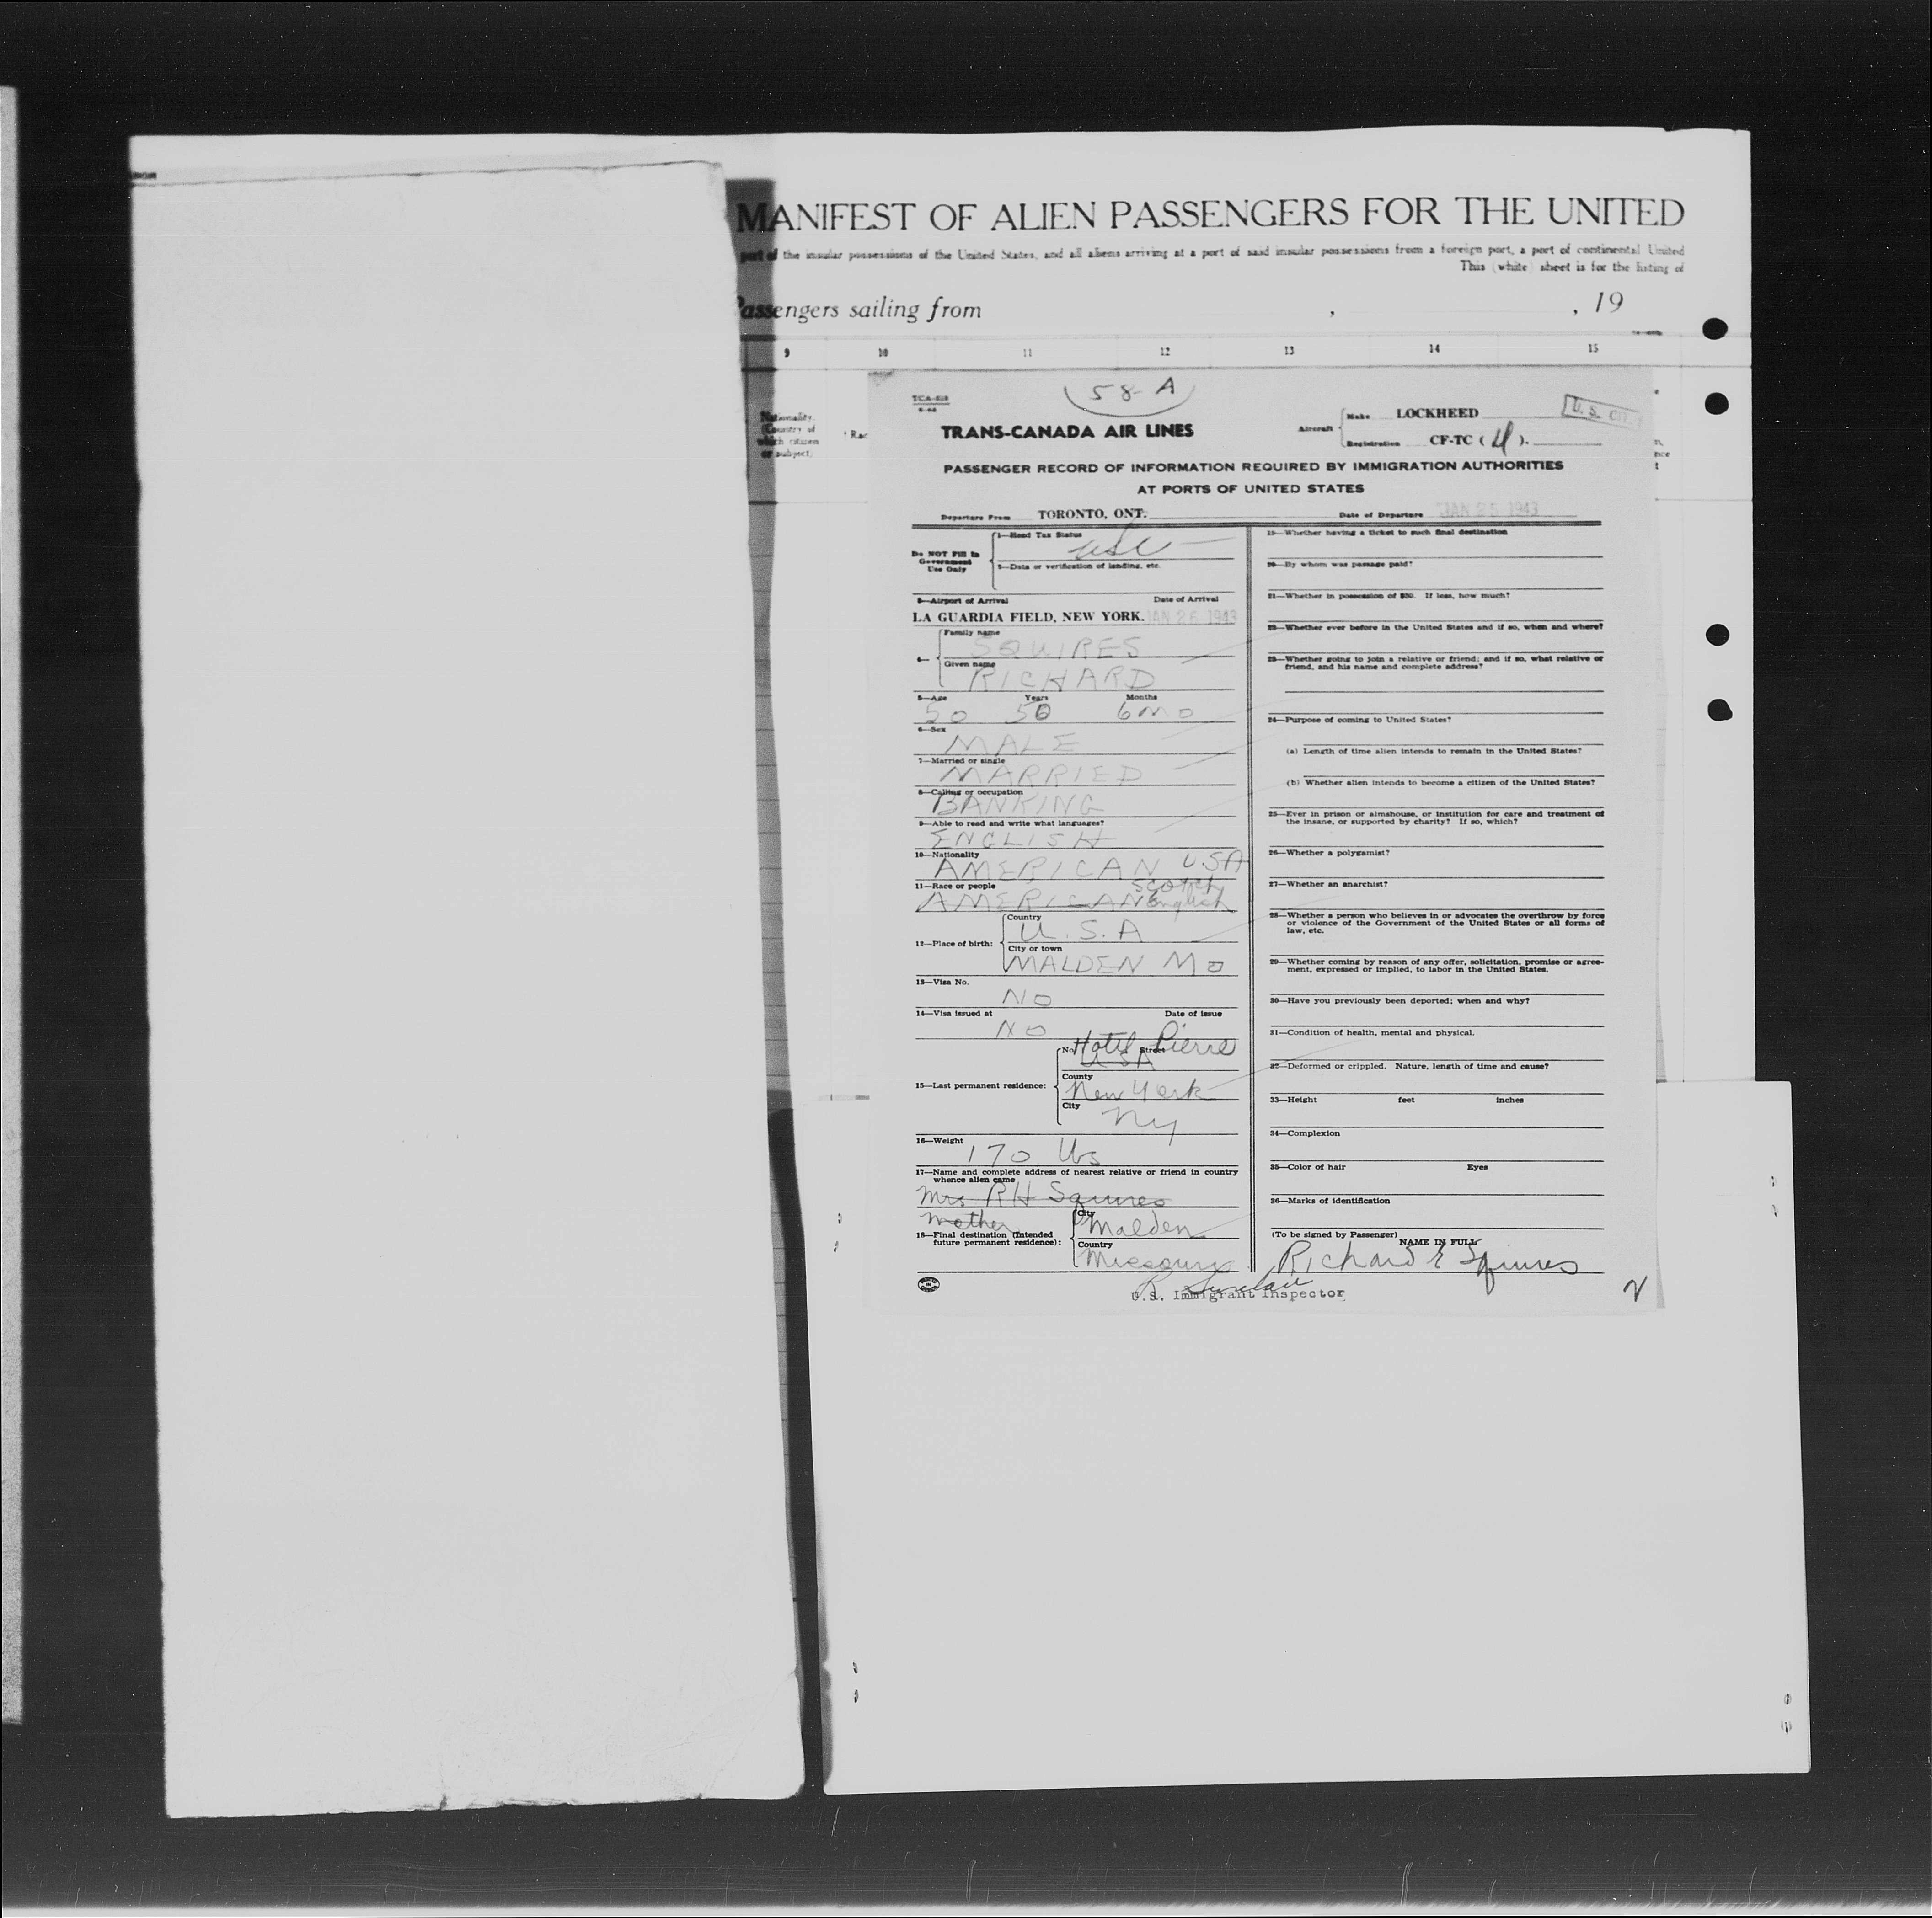 MANIFEST OF ALIEN PASSENGERS FOR THE UNITED
port of the insular possessions of the United States, and all aliens arriving at a port of said insular possessions from a foreign port, a port of continental United
This (white) sheet is for the listing of
Passengers sailing from , , 19
9 10 11 12 13 14 15
Nationality.
(Country of
which citizen
or subject)
Rac
58-A
TCA-
TRANS-CANADA AIR LINES
Aircraft
Make LOCKHEED
Registration CF-TC ( 4 ).
U. S. CIT.
PASSENGER RECORD OF INFORMATION REQUIRED BY IMMIGRATION AUTHORITIES
AT PORTS OF UNITED STATES
Departure From TORONTO, ONT.
Date of Departure JAN 25 1943
Do NOT Fill in
Government
Use Only
1—Head Tax Status
usc
2—Data or verification of landing, etc.
3—Airport of Arrival Date of Arrival
LA GUARDIA FIELD, NEW YORK. JAN 26 1943
4—
Family name
SQUIRES
Given name
RICHARD
5—Age Years Months
50 50 6 MO
6—Sex
MALE
7—Married or single
MARRIED
8—Calling or occupation
BANKING
9—Able to read and write what languages?
ENGLISH
10—Nationality
AMERICAN U.S.A
11—Race or people
AMERICAN Scotch English
12—Place of birth:
Country
U.S.A
City or town
MALDEN MO
13—Visa No.
NO
14—Visa issued at Date of issue
NO
15—Last permanent residence:
No. Street
Hotel Pierre
USA
County
New York
City
NY
16—Weight
170 lbs
17—Name and complete address of nearest relative or friend in country
whence alien came
Mrs RH Squires
Mother
18—Final destination (Intended
future permanent residence):
City
Malden
Country
Missouri
19—Whether having a ticket to such final destination
20—By whom was passage paid?
21—Whether in possession of $50. If less, how much?
22—Whether ever before in the United States and if so, when and where?
23—Whether going to join a relative or friend; and if so, what relative or
friend, and his name and complete address?
24—Purpose of coming to United States?
(a) Length of time alien intends to remain in the United States?
(b) Whether alien intends to become a citizen of the United States?
25—Ever in prison or almshouse, or institution for care and treatment of
the insane, or supported by charity? If so, which?
26—Whether a polygamist?
27—Whether an anarchist?
28—Whether a person who believes in or advocates the overthrow by force
or violence of the Government of the United States or all forms of
law, etc.
29—Whether coming by reason of any offer, solicitation, promise or agree-
ment, expressed or implied, to labor in the United States.
30—Have you previously been deported; when and why?
31—Condition of health, mental and physical.
32—Deformed or crippled. Nature, length of time and cause?
33—Height feet inches
34—Complexion
35—Color of hair Eyes
36—Marks of identification
(To be signed by Passenger)
NAME IN FULL
Richard E Squires
R Sinclair
U.S. Immigrant Inspector